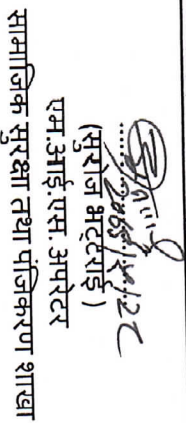 (सुरोज भट्टराई)
एम.आई.एस. अपरेटर
सामाजिक सुरक्षा तथा पंजिकरण शाखा